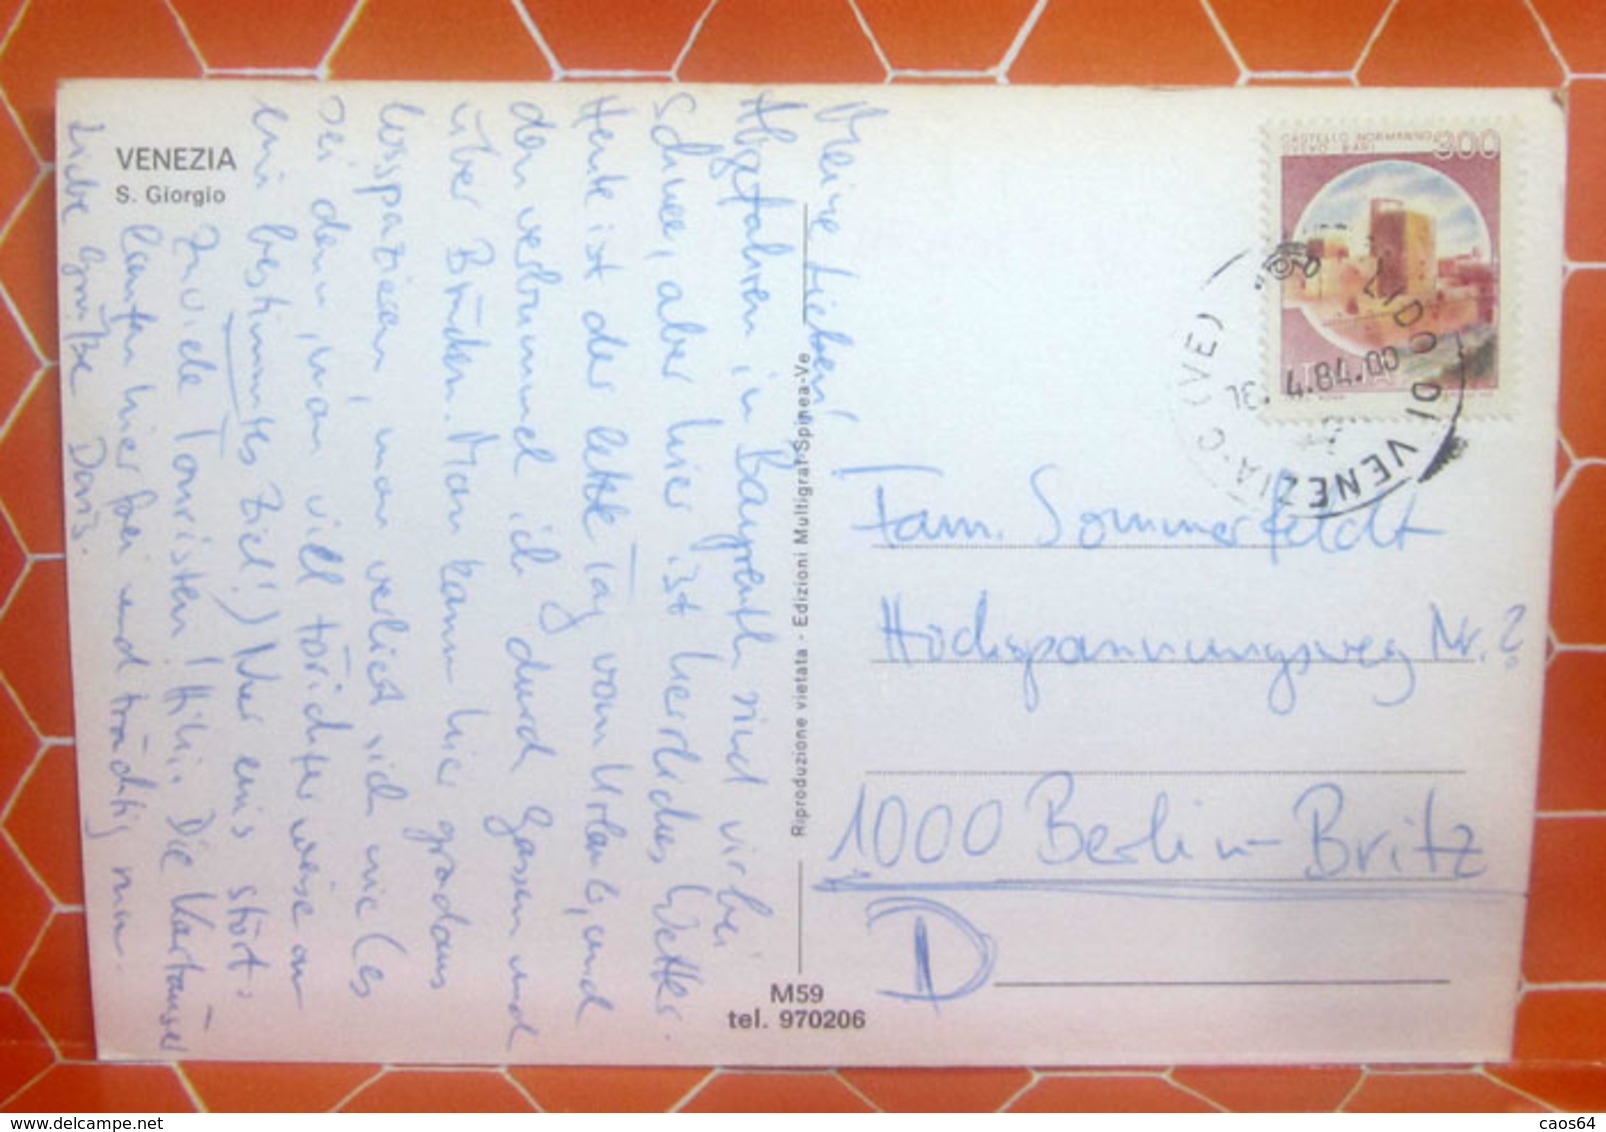 VENEZIA
S. Giorgio
Meine Lieben!
Abgefahren in Bayreuth sind wir bei
Schnee, aber hier ist herrliches Wetter.
Heute ist der letzte Tag vom Urlaub, und
den verbummel ich durch Gassen und
über Brücken. Man kann hier gradaus
losspazieren, man verliert sich nie (es
sei denn, man will törichterweise an
ein bestimmtes Ziel!) Nur eins stört:
Zuviele Touristen! Hihi. Die
laufen hier frei und trächtig rum.
Liebe Grüße Doris.
Riproduzione vietata - Edizioni Multigraf Spinea-Ve
M59
tel. 970206
CASTELLO NORMANNO
SVEVO BARI
300
LIDO DI VENEZIA
VENEZIA-C (VE)
4.84.00
Fam. Sommerfeldt
Hochspannungsweg Nr. ?
1000 Berlin-Britz
D
delcampe.net
caos64